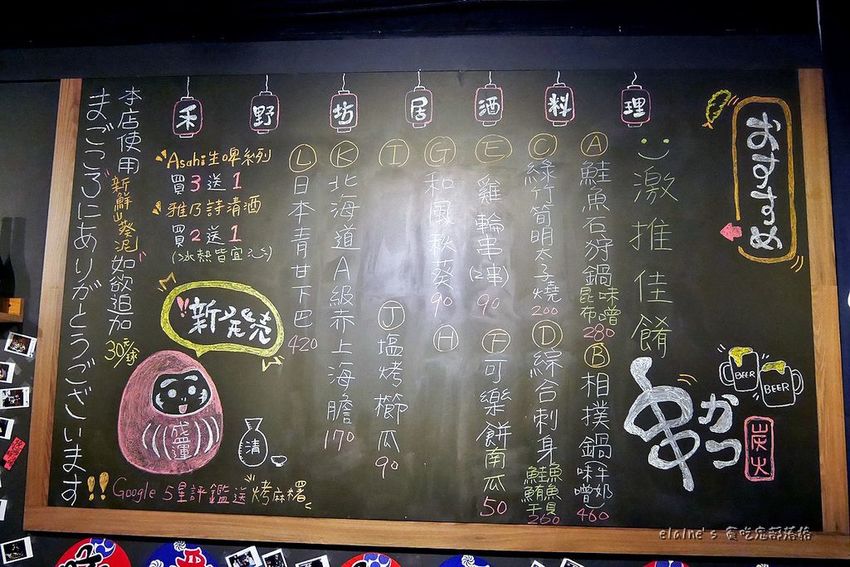 禾野坊居酒料理
おすすめ
激推佳餚
串かつ
炭火
BEER
BEER
Ⓐ 鮭魚石狩鍋 味噌 昆布 280
Ⓑ 相撲鍋 (牛奶 味噌) 460
Ⓒ 綠竹筍明太子燒 200
Ⓓ 綜合刺身 鮭魚 鮪魚 干貝 260
Ⓔ 雞輪串 (2串) 90
Ⓕ 可樂餅 南瓜 50
Ⓖ 和風秋葵 90
Ⓗ
Ⓘ
Ⓙ 塩烤櫛瓜 90
Ⓚ 北海道A級赤上海膽 170
Ⓛ 日本青甘下巴 420
Asahi生啤系列
買3送1
雅乃詩清酒
買2送1
(冰熱皆宜)
新發売
盛運
清
Google 5星評鑑送烤麻糬
本店使用新鮮山葵泥 如欲追加 30元/球
まごころにありがとうございます!!
elaine's 貪吃鬼部落格